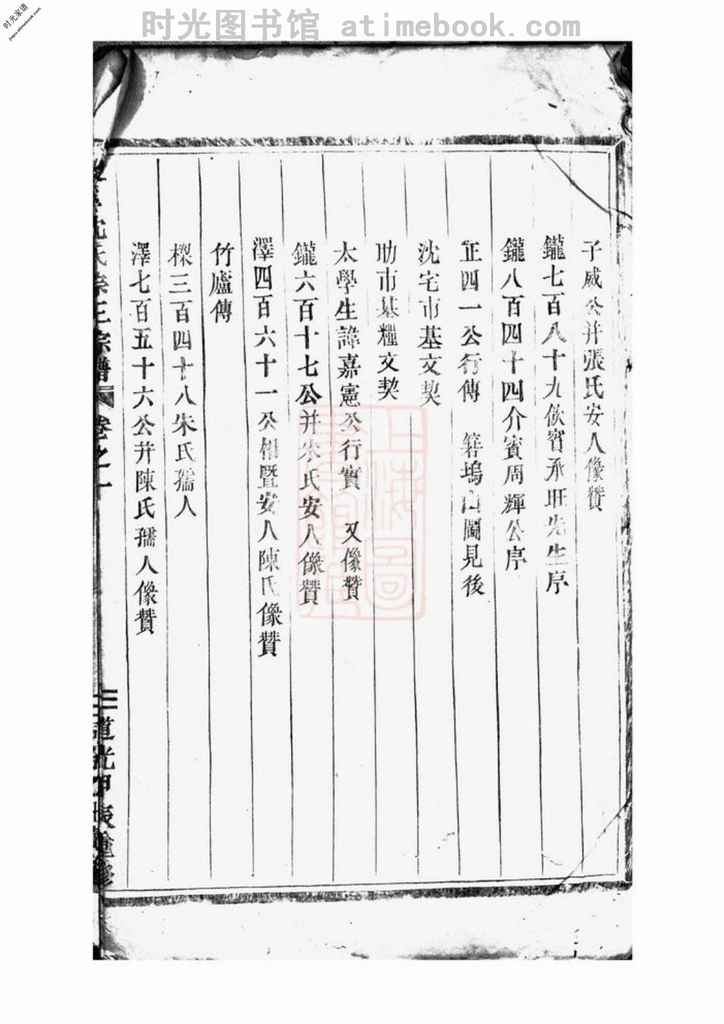 时光图书馆 atimebook.com
时光家谱
子威公并張氏安人像贊
鑨七百八十九飲賓承旺先生序
鑨八百四十四介賓周輝公序
正四一公行傳 簪塢山圖見後
沈宅市基文契
助市基糧文契
太學生諱嘉憲公行實 又像贊
鑨六百十七公并朱氏安人像贊
澤四百六十一公相暨安人陳氏像贊
竹廬傳
樑三百四十八朱氏孺人
澤七百五十六公并陳氏孺人像贊
沈氏宗譜 卷之一
道光重修